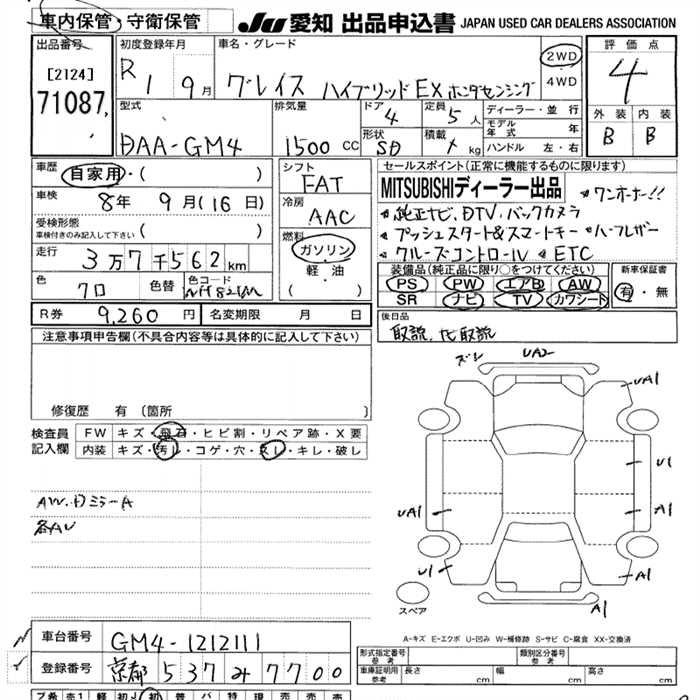 車内保管・守衛保管 JU 愛知 出品申込書 JAPAN USED CAR DEALERS ASSOCIATION
出品番号 [2124] 71087
初度登録年月 R 1 9月
車名・グレード グレイス ハイブリッドEX ホンダセンシング
2WD
4WD
評価点 4
外装 内装
B B
型式 DAA-GM4
排気量 1500 CC
ドア 4
形状 SD
定員 5人
積載 kg
ディーラー・並行
モデル年式 年
ハンドル 左・右
車歴 自家用・( )
車検 8年 9月(16日)
受検形態
車検付きのみ記入して下さい ( )
走行 3万7千562km
色 クロ 色替 色コード
シフト FAT
冷房 AAC
燃料 ガソリン
軽・油
( )
R券 9,260円 名変期限 月 日
セールスポイント(正常に機能するものに限ります)
MITSUBISHIディーラー出品 ワンオーナー!!
純正ナビ、DTV、バックカメラ
プッシュスタート&スマートキー ハーフレザー
クルーズコントロール ETC
装備品(純正品に限り○をつけてください)
PS PW エアB AW
SR ナビ TV カワシート
新車保証書
有・無
後日品
取説、ナビ取説
注意事項申告欄(不具合内容等は具体的に記入して下さい)
修復歴 有 〔箇所 〕
検査員記入欄
FW キズ・飛石・ヒビ割・リペア跡・X要
内装 キズ・汚れ・コゲ・穴・スレ・キレ・破レ
AW、Dミラー A
各AU
ズレ UA2
UA1
U1
A1
UA1
U1
A1
A1
スペア
A-キズ E-エクボ U-凹み W-補修跡 S-サビ C-腐食 XX-交換済
車台番号 GM4-1212111
登録番号 京都 537 み 7700
形式指定番号 参考
類別区分番号 参考
車庫証明用 参考 長さ cm 幅 cm 高さ cm